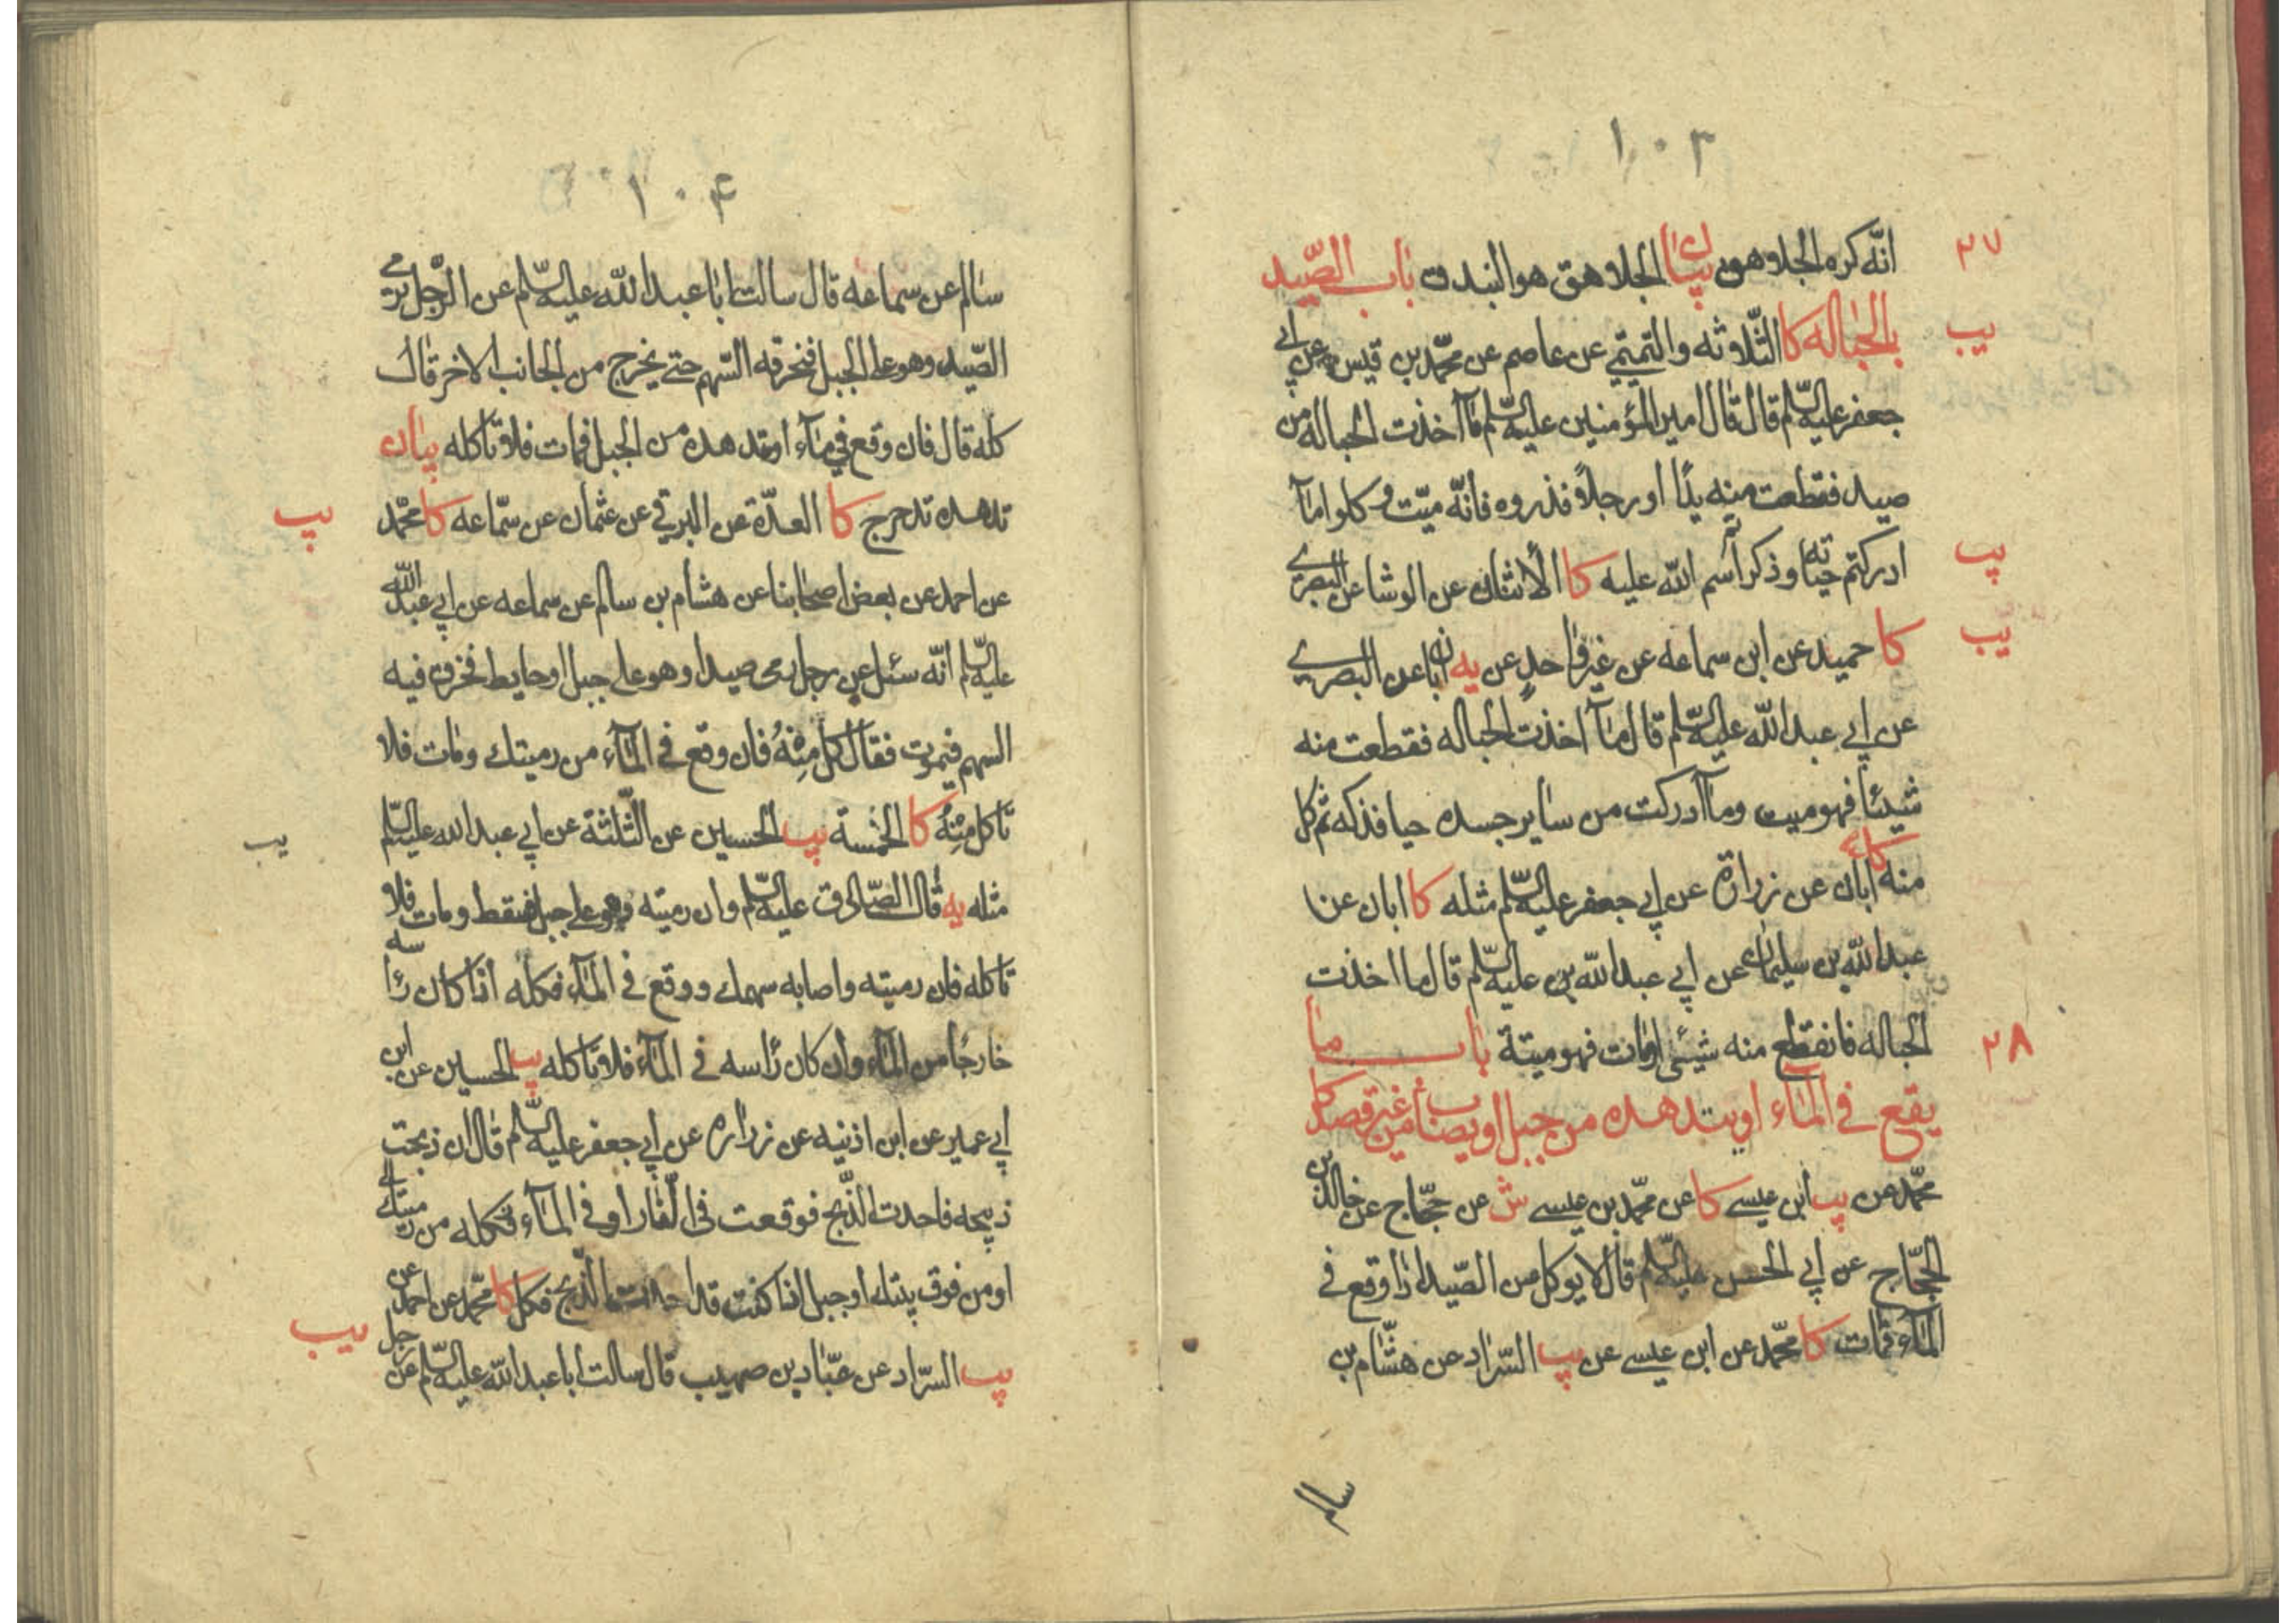 ١٠٣
٢٧
انّه كره الجلاهق بيان الجلاهق هو البندق باب الصّيد
يب
بالحباله كا الثّلاثه والتميمّي عن عاصم عن محمّد بن قيس عن ابي
جعفر عليه السّلم قال قال امير المؤمنين عليه السّلم ما اخذت الحباله من
صيد فقطعت منه يدًا او رجلاً فذروه فانّه ميّت وكلوا ممّا
يب
ادركتم حياته وذكرتم اسم الله عليه كا الاثنان عن الوشا عن البصري
يب
كا حميد عن ابن سماعه عن غير واحدٍ عن يه ابان عن البصري
عن ابي عبد الله عليه السّلم قال ما اخذت الحباله فقطعت منه
شيئًا فهو ميت وما ادركت من ساير جسده حيا فذكه ثم كل
منه كا ابان عن زرارة عن ابي جعفر عليه السّلم مثله كا ابان عن
عبد الله بن سليمان عن ابي عبد الله بن عليه السّلم قال ما اخذت
٢٨
الحباله فانقطع منه شيئى او مات فهو ميتة باب ما
يقع في الماء او يتدهده من جبل او يصاب من غير قصد كا
محمّد عن يب ابن عيسے كا عن محمّد بن عيسے ش عن حجّاج عن خالد بن
الحجّاج عن ابي الحسن عليه السّلم قال لا يوكل من الصّيد اذا وقع في
الماء فمات كا محمّد عن ابن عيسے عن يب السّراد عن هشّام بن
سالم
١٠۴
سالم عن سماعه قال سالت ابا عبد الله عليه السّلم عن الرّجل يرمي
الصّيد وهو على الجبل فتخرقه السّهم حتے يخرج من الجانب الاخر قال
كله قال فان وقع في ماء او تدهده من الجبل فمات فلا تاكله بيان
يب
تدهده تدحرج كا العدّة عن البرقي عن عثمان عن سمّاعه كا محمّد
عن احمد عن بعض اصحابنا عن هشام بن سالم عن سماعه عن ابي عبد الله
عليه السّلم انّه سئل عن رجل رمى صيدا وهو على جبل او حايط فخرق فيه
السهم فيموت فقال كل مِنْهُ فان وقع في الماء من رميتك ومات فلا
يب
تاكل مِنْهُ كا الخمسة يب الحسين عن الثّلثة عن ابي عبد الله عليه السّلم
مثله يه قال الصّادق عليه السّلم وان رميته وهو على جبل فسقط ومات فلا
تاكله فان رميته واصابه سهمك ووقع في الماء فكله اذا كان راسه
خارجا من الماء وان كان راسه في الماء فلا تاكله يب الحسين عن ابن
ابي عمير عن ابن اذنيه عن زراره عن ابي جعفر عليه السّلم قال ان ذبحت
ذبيحه فاجدت الذّبح فوقعت في النّار او في الماء
او من فوق بيتك او جبل اذا كنت قد اجدت الذّبح فكل كا محمّد عن احمد عن
يب
يب السّراد عن عبّاد بن صهيب قال سالت ابا عبد الله عليه السّلم عن رجل